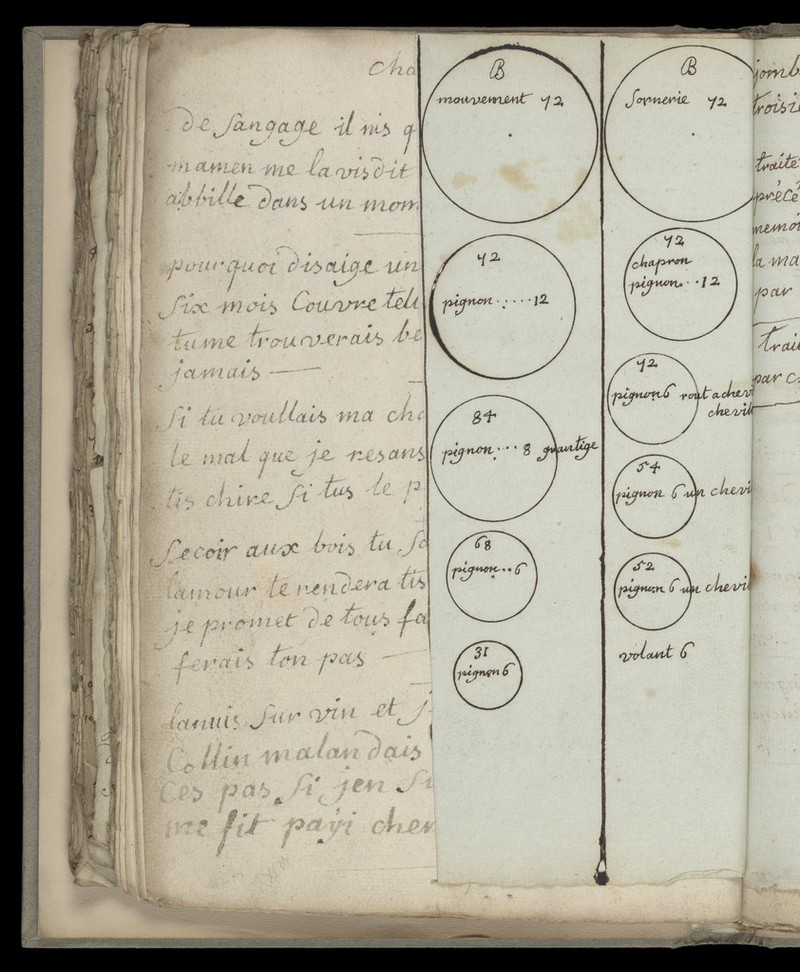 cha
de sangage il nis q
mamen me la vis dit
abbille dans un mom
pourquoi disaige un
six mois Couvre tell
tume trouverais be
jamais
si tu voullais ma che
le mal que je resans
tis chire si tus le p
se coir aux bois tu so
lamour te rendera tis
je promet de tous fa
ferais ton pas
lanuis sur vin et j
Collin malandais
Ces pas si jen su
me fit payi cher
B
mouvement 72
72
pignon ...... 12
84
pignon ... 8 grantige
68
pignon .. 6
31
pignon 6
B
sornerie 72
72
chapron
pignon .. 12
72
pignon 6 rout a chev
chevill
54
pignon 6 un chevi
52
pignon 6 un chevil
volant 6
jomb
troisi
traite
précé
memoi
la ma
par
trai
par c